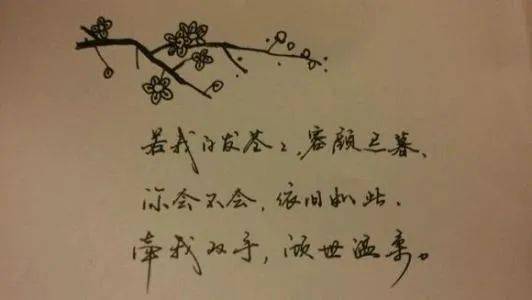 若我白发苍々，容颜已暮、
你会不会，依旧如此，
牵我双手，倾世温柔。